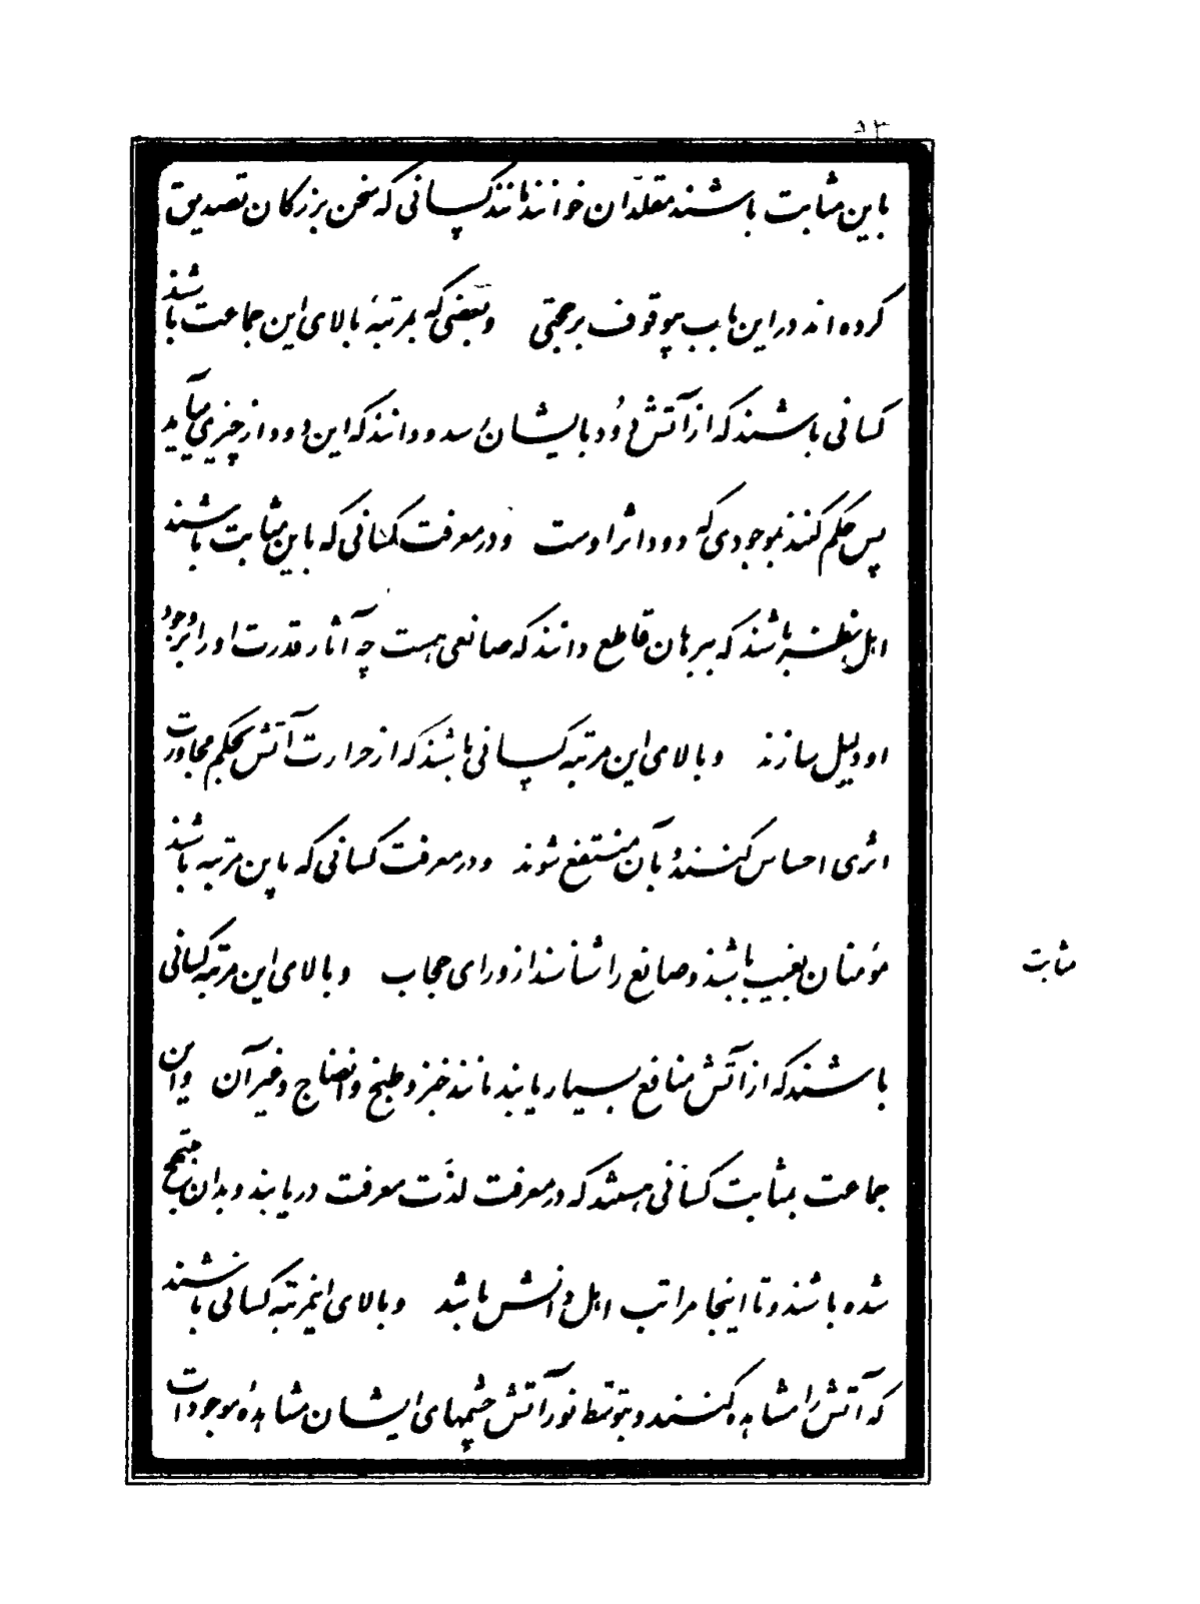 ۵۳
باین مثابت باشند مقلّدان خوانند مانند کسانی که سخن بزرکان تصدیق
کرده اند در این باب بی وقوف بر حجتی و بعضی که بمرتبهٔ بالای این جماعت باشند
کسانی باشند که از آتش دُود بایشان رسد و دانند که این دود از چیزی میآید
پس حکم کنند بموجودی که دود اثر اوست و در معرفت کسانی که باین مثابت باشند
اهل نظر باشند که ببرهان قاطع دانند که صانعی هست چه آثار قدرت او را بر وجود
او دلیل سازند و بالای این مرتبه کسانی باشند که از حرارت آتش بحکم مجاورت
اثری احساس کنند و بآن منتفع شوند و در معرفت کسانی که باین مرتبه باشند
مؤمنان بغیب باشند و صانع را شناسند از ورای حجاب و بالای این مرتبه کسانی
مثابت
باشند که از آتش منافع بسیار یابند مانند خبز و طبخ و انضاج و غیر آن و این
جماعت بمثابت کسانی هستند که در معرفت لذّت معرفت دریابند و بدان مبتهج
شده باشند و تا اینجا مراتب اهل دانش باشد و بالای اینمرتبه کسانی باشند
که آتش را مشاهده کنند و بتوسّط نور آتش چشمهای ایشان مشاهدهٔ موجودات